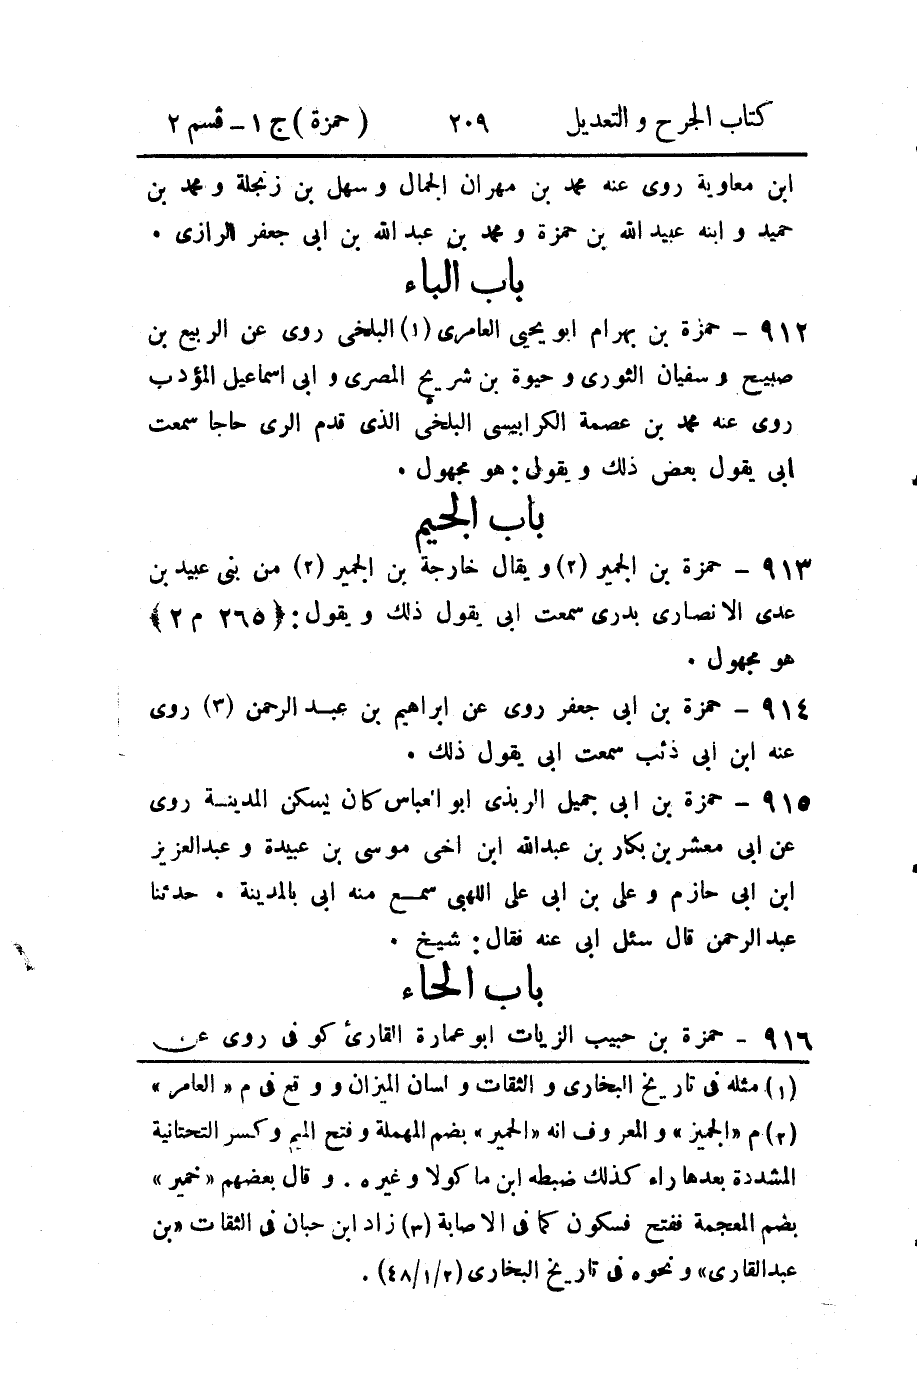 كتاب الجرح و التعديل ٢٠٩ (حمزة) ج ١ - قسم ٢
ابن معاوية روى عنه محمد بن مهران الجمال و سهل بن زنجلة و محمد بن
حميد و ابنه عبيد الله بن حمزة و محمد بن عبد الله بن ابى جعفر الرازى .
باب الباء
٩١٢ - حمزة بن بهرام ابو يحيى العامرى (١) البلخى روى عن الربيع بن
صبيح و سفيان الثورى و حيوة بن شريح المصرى و ابى اسماعيل المؤدب
روى عنه محمد بن عصمة الكرابيسى البلخى الذى قدم الرى حاجا سمعت
ابى يقول بعض ذلك و يقول : هو مجهول .
باب الجيم
٩١٣ - حمزة بن الجمير (٢) و يقال خارجة بن الجمير (٢) من بنى عبيد بن
عدى الانصارى بدرى سمعت ابى يقول ذلك و يقول : ﴿٢٦٥ م ٢﴾
هو مجهول .
٩١٤ - حمزة بن ابى جعفر روى عن ابراهيم بن عبد الرحمن (٣) روى
عنه ابن ابى ذئب سمعت ابى يقول ذلك .
٩١٥ - حمزة بن ابى جميل الربذى ابو العباس كان يسكن المدينة روى
عن ابى معشر بن بكار بن عبدالله ابن اخى موسى بن عبيدة و عبدالعزيز
ابن ابى حازم و على بن ابى على اللهبى سمع منه ابى بالمدينة . حدثنا
عبد الرحمن قال سئل ابى عنه فقال : شيخ .
باب الحاء
٩١٦ - حمزة بن حبيب الزيات ابو عمارة القارئ كوفى روى عن
(١) مثله فى تاريخ البخارى و الثقات و لسان الميزان و وقع فى م « العامر »
(٢) م «الجميز» و المعروف انه «الحمير» بضم المهملة و فتح الميم و كسر التحتانية
المشددة بعدها راء كذلك ضبطه ابن ماكولا و غيره . و قال بعضهم «خمير»
بضم المعجمة ففتح فسكون كما فى الاصابة (٣) زاد ابن حبان فى الثقات «بن
عبدالقارى» و نحوه فى تاريخ البخارى (٢/١/٤٨) .